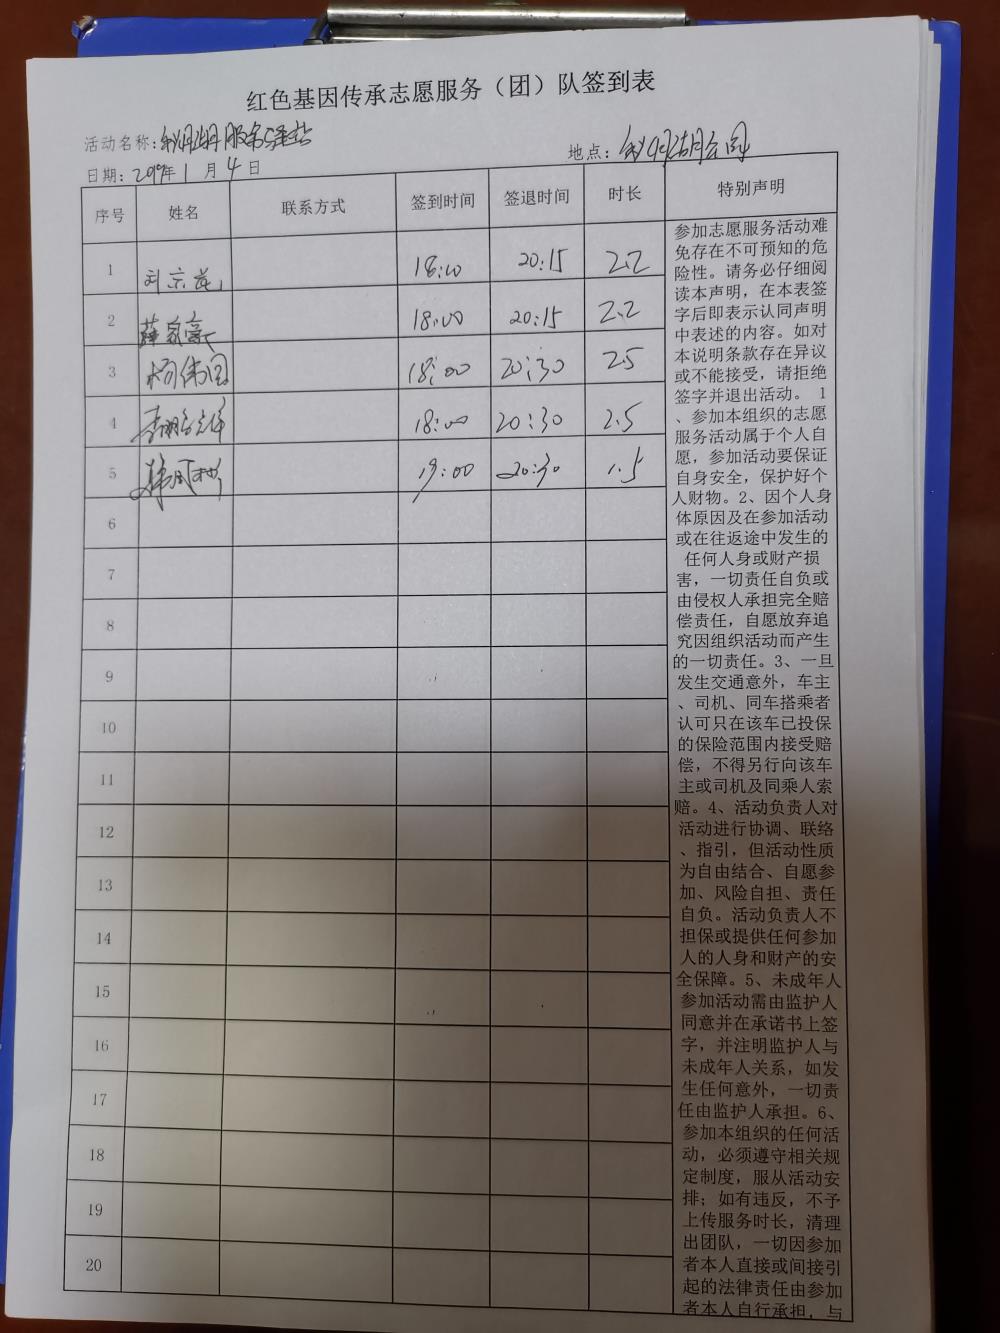 红色基因传承志愿服务（团）队签到表
活动名称：秋月湖服务驿站
地点：秋月湖公园
日期：2019年1月4日
序号 姓名 联系方式 签到时间 签退时间 时长 特别声明
1 18:00 20:15 2.2
2 薛家豪 18:00 20:15 2.2
3 杨伟国 18:00 20:30 2.5
4 18:00 20:30 2.5
5 19:00 20:30 1.5
6
7
8
9
10
11
12
13
14
15
16
17
18
19
20
参加志愿服务活动难
免存在不可预知的危
险性。请务必仔细阅
读本声明，在本表签
字后即表示认同声明
中表述的内容。如对
本说明条款存在异议
或不能接受，请拒绝
签字并退出活动。 1
、参加本组织的志愿
服务活动属于个人自
愿，参加活动要保证
自身安全，保护好个
人财物。2、因个人身
体原因及在参加活动
或在往返途中发生的
任何人身或财产损
害，一切责任自负或
由侵权人承担完全赔
偿责任，自愿放弃追
究因组织活动而产生
的一切责任。3、一旦
发生交通意外，车主
、司机、同车搭乘者
认可只在该车已投保
的保险范围内接受赔
偿，不得另行向该车
主或司机及同乘人索
赔。4、活动负责人对
活动进行协调、联络
、指引，但活动性质
为自由结合、自愿参
加、风险自担、责任
自负。活动负责人不
担保或提供任何参加
人的人身和财产的安
全保障。5、未成年人
参加活动需由监护人
同意并在承诺书上签
字，并注明监护人与
未成年人关系，如发
生任何意外，一切责
任由监护人承担。6、
参加本组织的任何活
动，必须遵守相关规
定制度，服从活动安
排；如有违反，不予
上传服务时长，清理
出团队，一切因参加
者本人直接或间接引
起的法律责任由参加
者本人自行承担，与